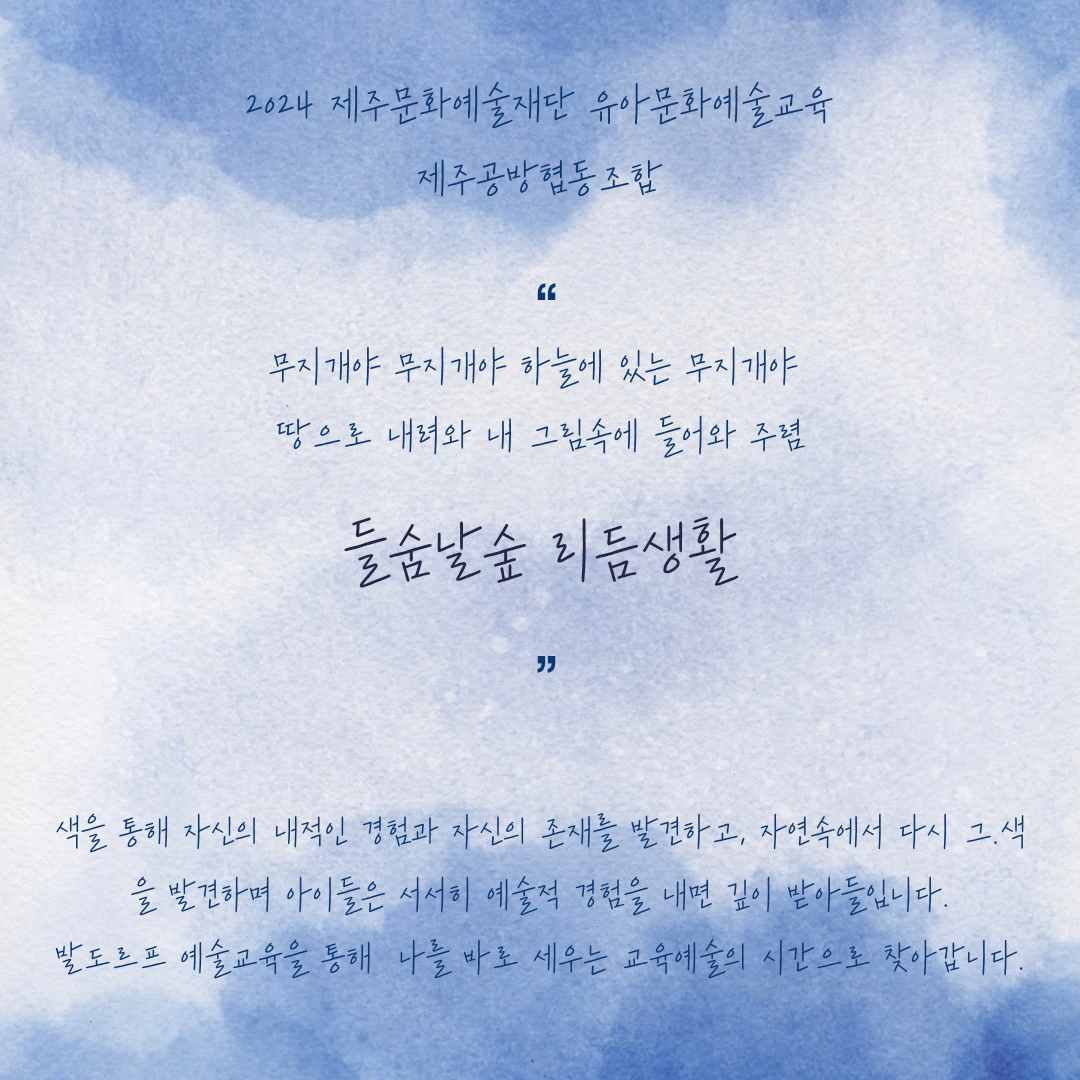 2024 제주문화예술재단 유아문화예술교육
제주공방협동조합
“
무지개야 무지개야 하늘에 있는 무지개야
땅으로 내려와 내 그림속에 들어와 주렴
들숨날숲 리듬생활
”
색을 통해 자신의 내적인 경험과 자신의 존재를 발견하고, 자연속에서 다시 그.색
을 발견하며 아이들은 서서히 예술적 경험을 내면 깊이 받아들입니다.
발도르프 예술교육을 통해 나를 바로 세우는 교육예술의 시간으로 찾아갑니다.